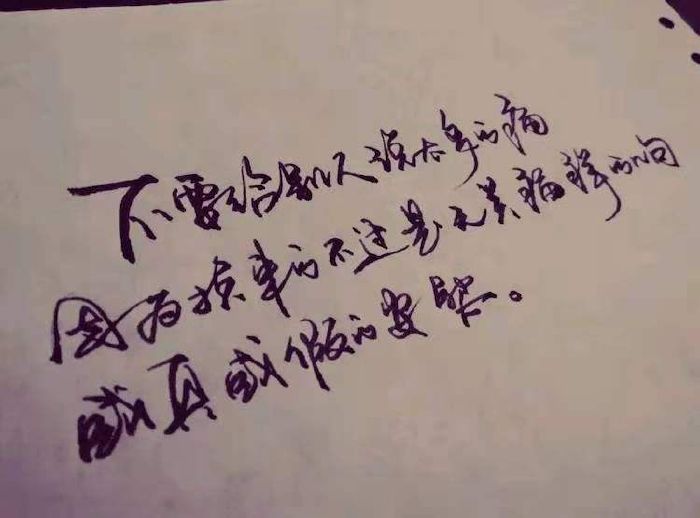 不要给别人说太多的痛
因为换来的不过是无关痛痒的问
或真或假的安慰。